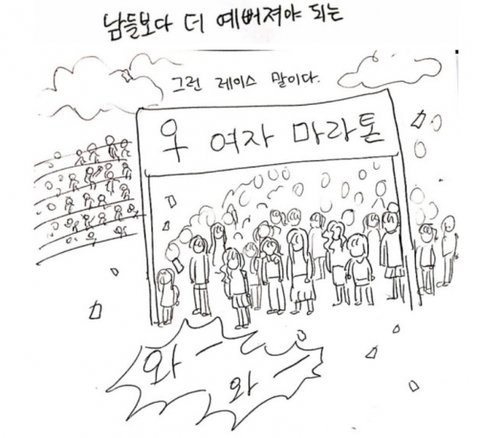 남들보다 더 예뻐져야 되는
그런 레이스 말이다.
우 여자 마라톤
와 -
와 -